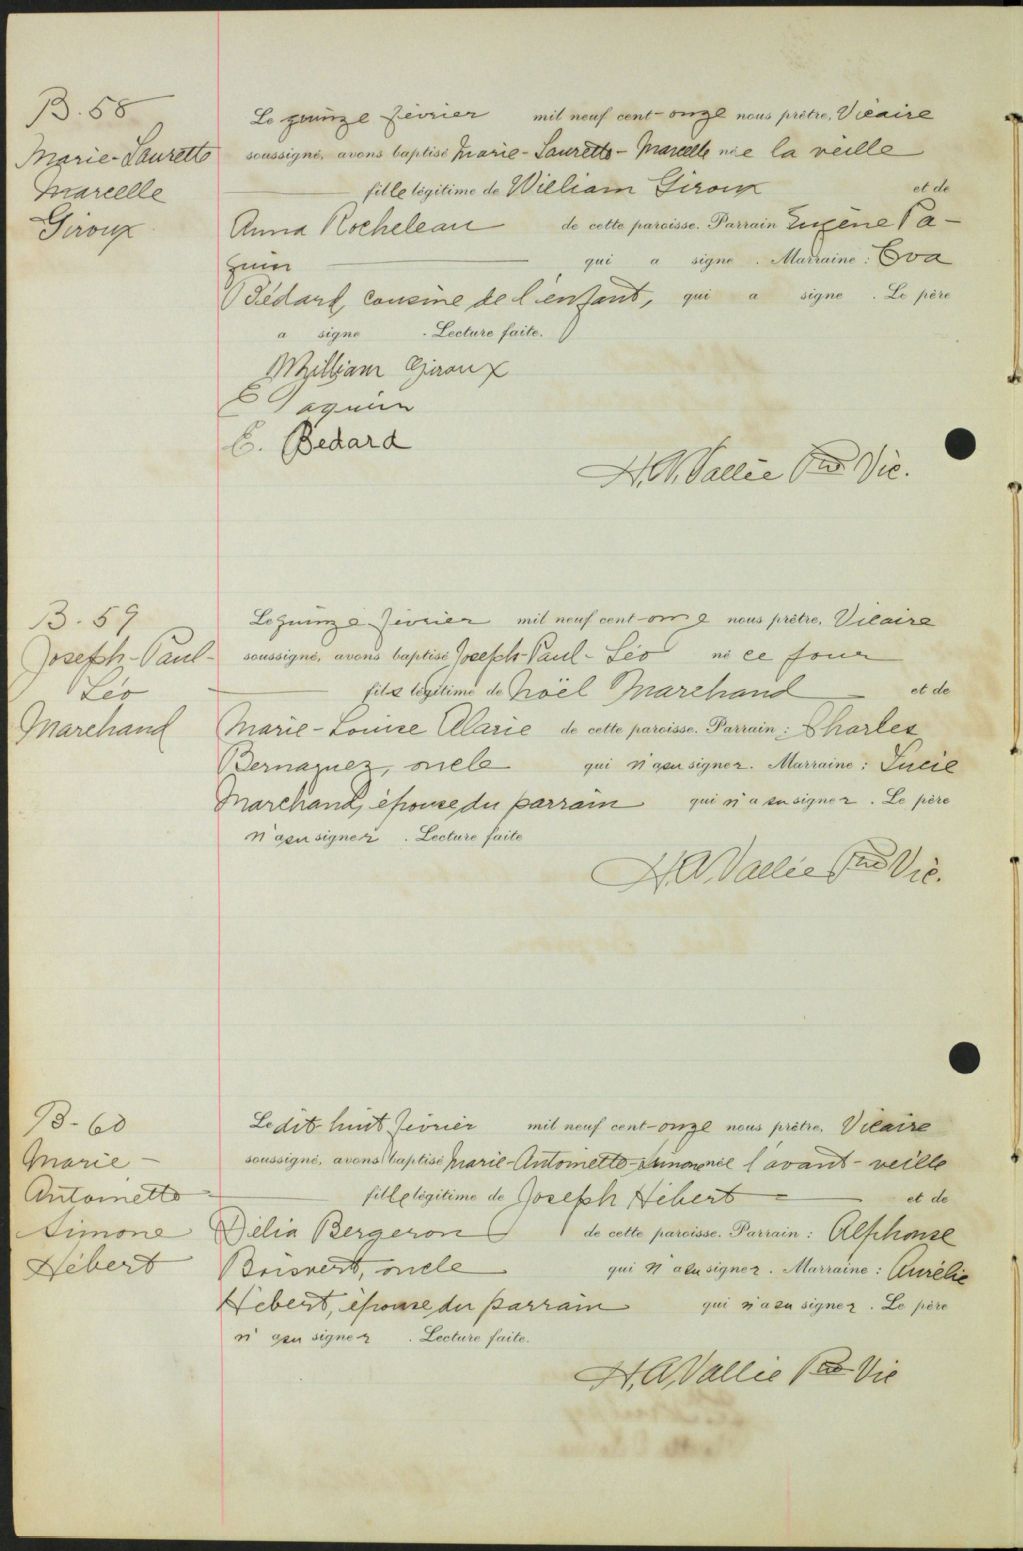 B. 58
Marie-Laurette
Marcelle
Giroux
Le quinze février mil neuf cent-onze nous prêtre, Vicaire
soussigné, avons baptisé Marie-Laurette-Marcelle née la veille
fille légitime de William Giroux et de
Anna Rocheleau de cette paroisse. Parrain Eugène Pa-
quin qui a signé. Marraine: Eva
Bédard, cousine de l'enfant, qui a signé. Le père
a signé. Lecture faite.
William Giroux
E Paquin
E. Bedard
H. A. Vallée Ptre Vic.
B. 59
Joseph-Paul-
Léo
Marchand
Le quinze février mil neuf cent-onze nous prêtre, Vicaire
soussigné, avons baptisé Joseph-Paul-Léo né ce jour
fils légitime de Noël Marchand et de
Marie-Louise Alarie de cette paroisse. Parrain: Charles
Bernaquez, oncle qui n'a su signer. Marraine: Lucie
Marchand, épouse du parrain qui n'a su signer. Le père
n'a su signer. Lecture faite
H. A. Vallée Ptre Vic.
B-60
Marie-
Antoinette
Simone
Hébert
Le dit-huit février mil neuf cent-onze nous prêtre, Vicaire
soussigné, avons baptisé Marie-Antoinette-Simone née l'avant-veille
fille légitime de Joseph Hébert et de
Délia Bergeron de cette paroisse. Parrain: Alphonse
Boisvert, oncle qui n'a su signer. Marraine: Aurélie
Hébert, épouse du parrain qui n'a su signer. Le père
n'a su signer. Lecture faite.
H. A. Vallée Ptre Vic